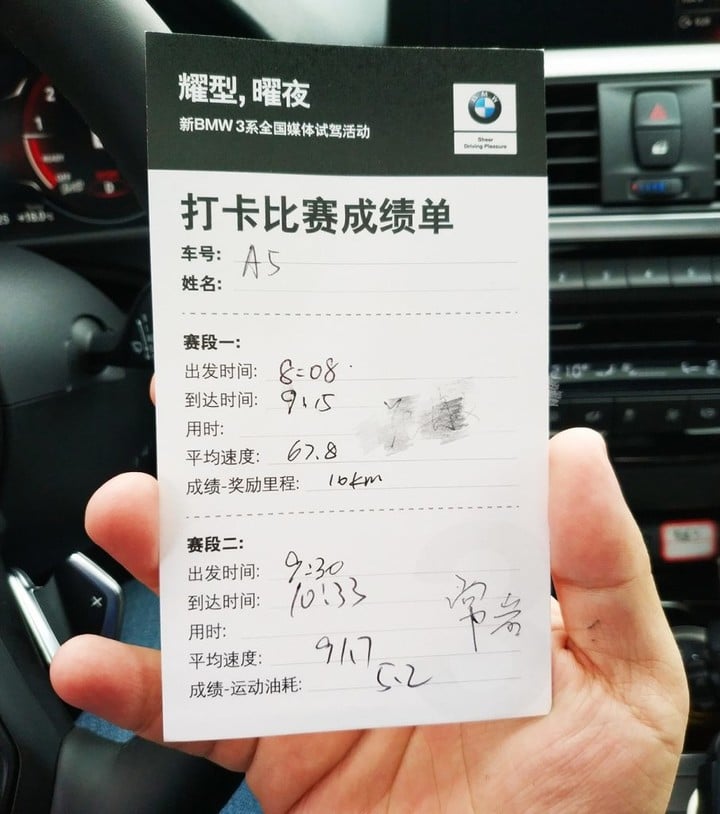 耀型,曜夜
新BMW 3系全国媒体试驾活动
BMW
Sheer
Driving Pleasure
打卡比赛成绩单
车号: A5
姓名:
赛段一:
出发时间: 8:08
到达时间: 9:15
用时:
平均速度: 67.8
成绩-奖励里程: 10km
赛段二:
出发时间: 9:30
到达时间: 10:33
用时:
平均速度: 91.7
成绩-运动油耗: 5.2